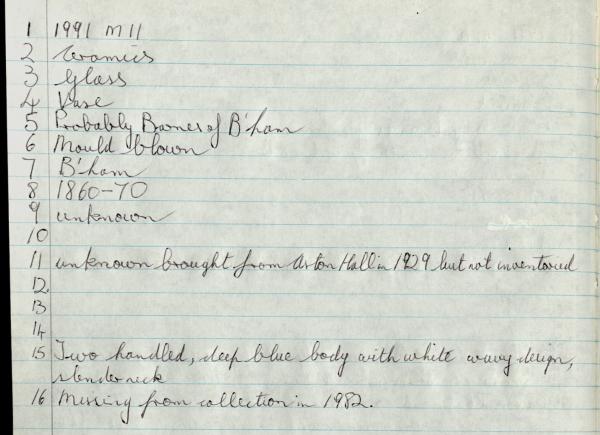 1 1991 M11
2 Ceramics
3 Glass
4 Vase
5 Probably Barnes of B'ham
6 Mould blown
7 B'ham
8 1860-70
9 unknown
10
11 unknown brought from Aston Hall in 1929 but not inventoried
12.
13
14
15 Two handled, deep blue body with white wavy design,
slender neck
16 Missing from collection in 1982.